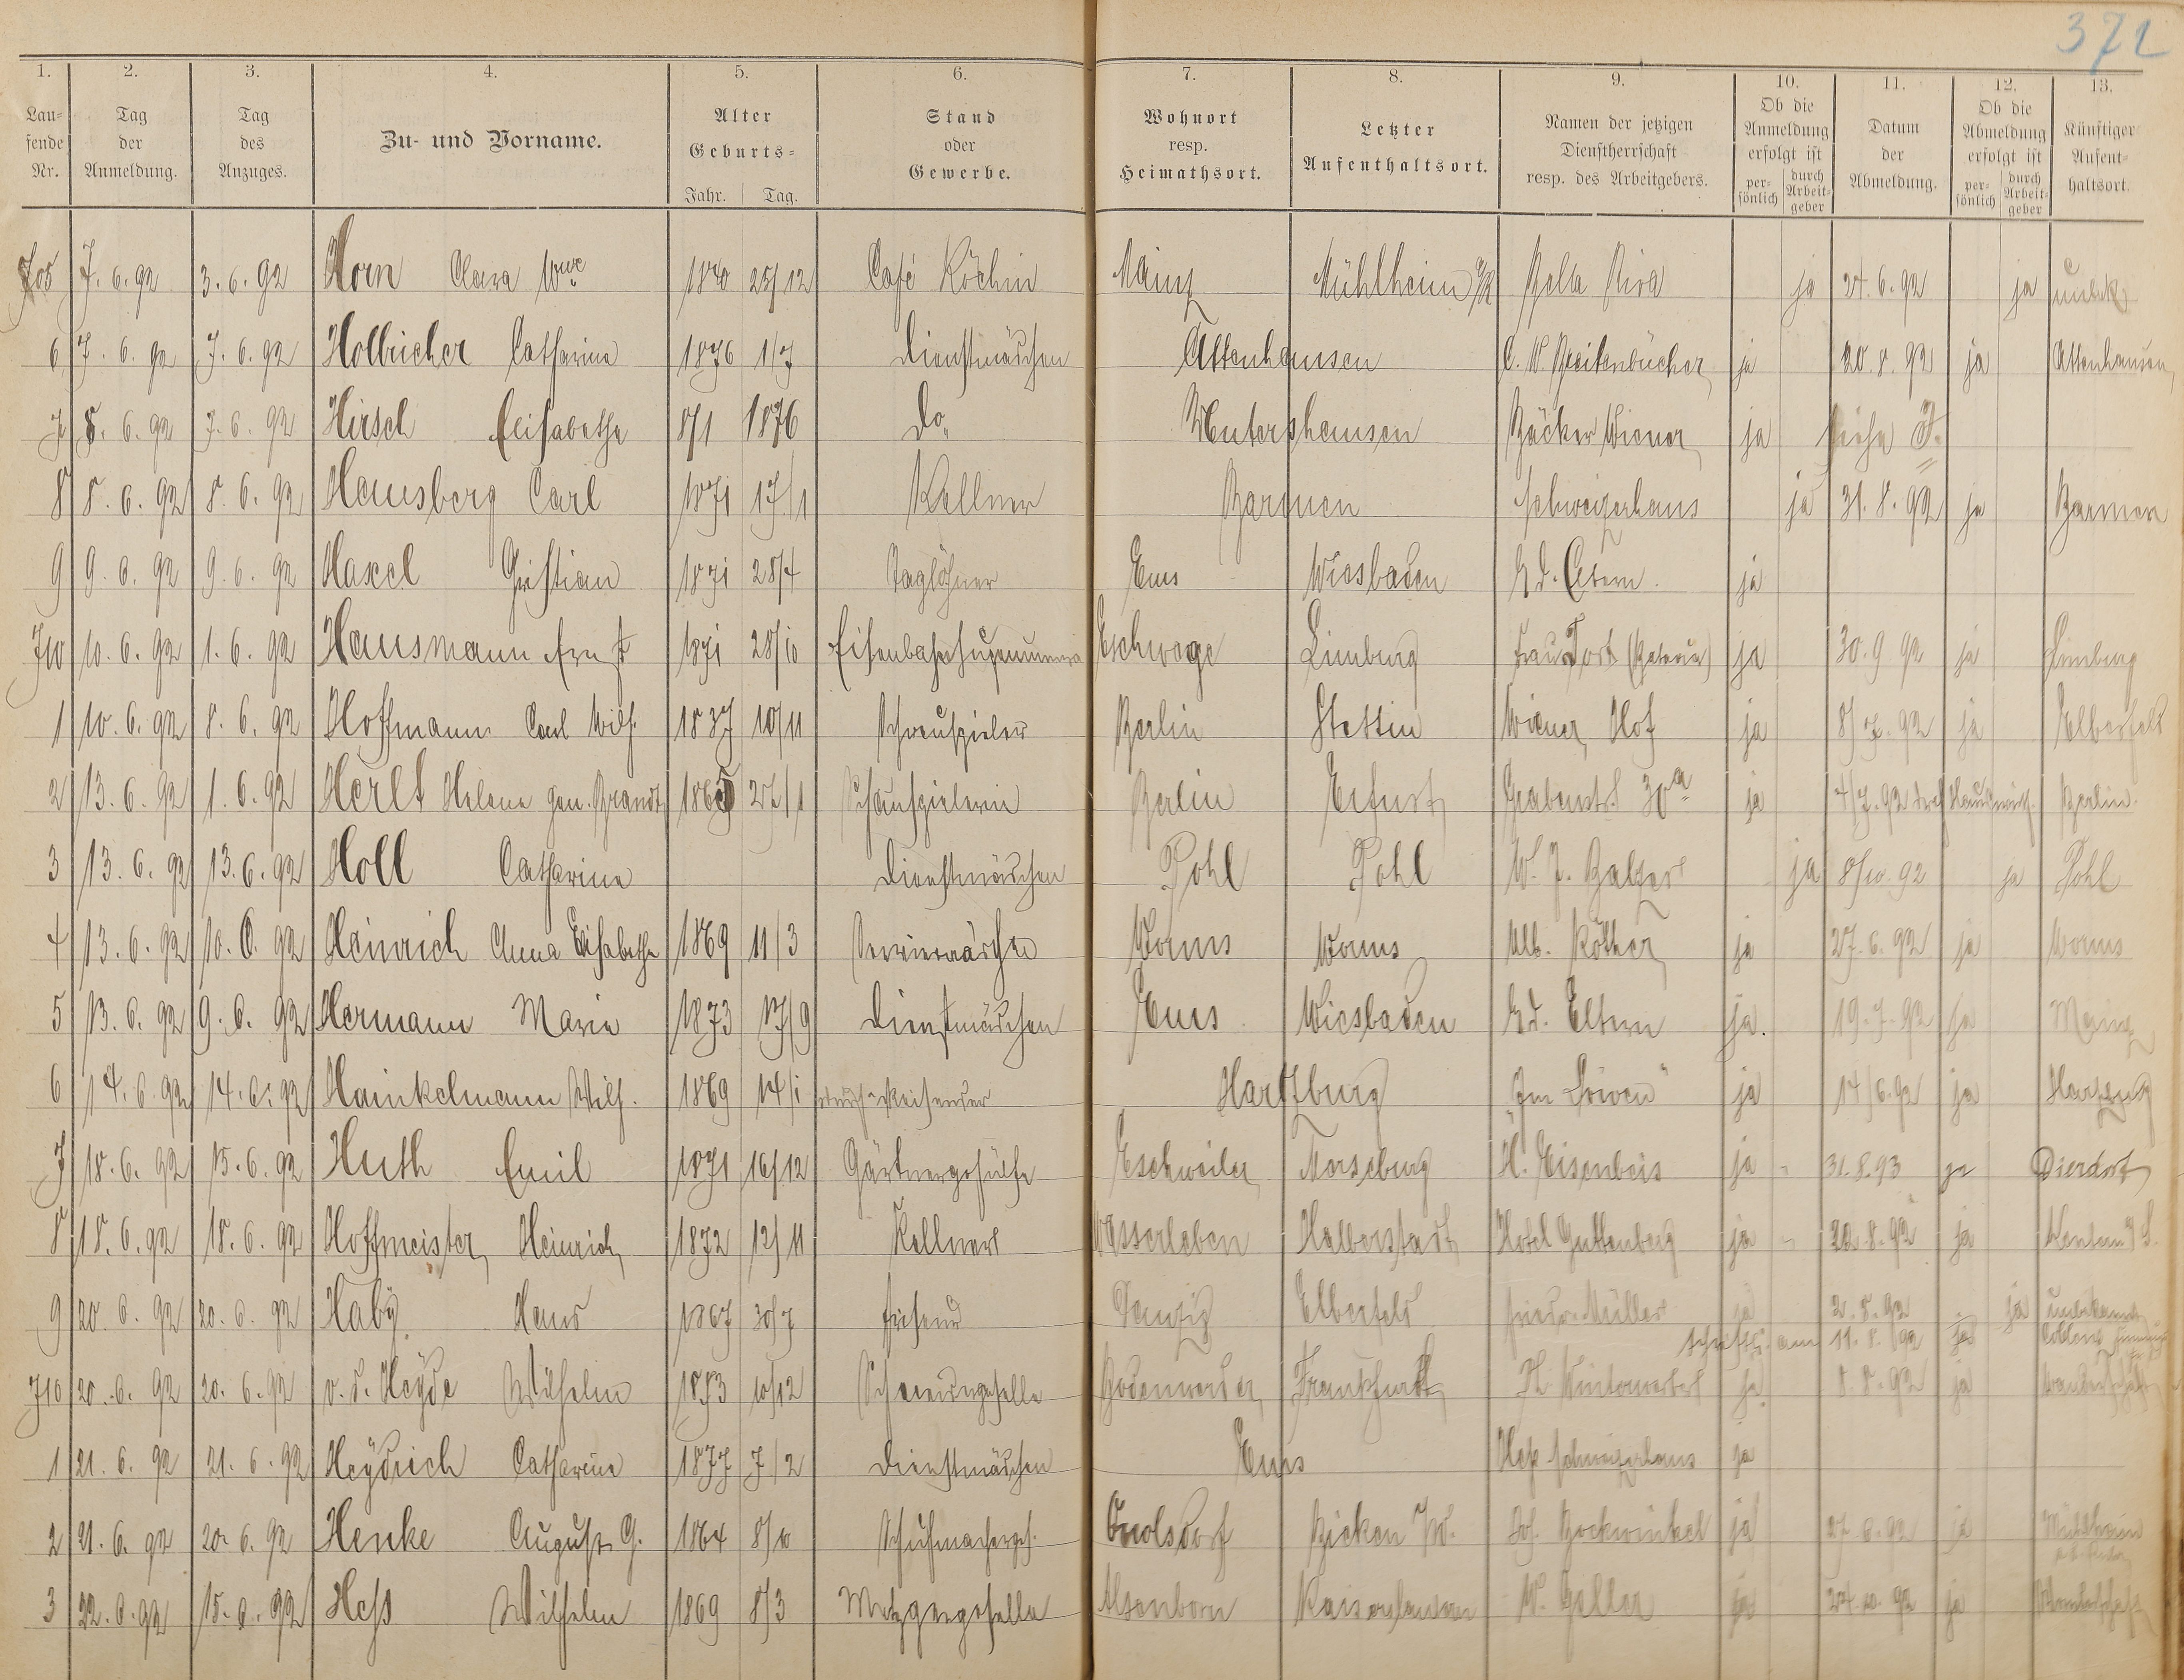 372
1. 2. 3. 4. 5. 6. 7. 8. 9. 10. 11. 12. 13.
Lau=
fende
Nr.
Tag
der
Anmeldung.
Tag
des
Anzuges.
Zu- und Vorname.
Alter
Geburts=
Jahr. Tag.
Stand
oder
Gewerbe.
Wohnort
resp.
Heimathsort.
Letzter
Aufenthaltsort.
Namen der jetzigen
Dienstherrschaft
resp. des Arbeitgebers.
Ob die
Anmeldung
erfolgt ist
per-
sönlich
durch
Arbeit-
geber
Datum
der
Abmeldung.
Ob die
Abmeldung
erfolgt ist
per-
sönlich
durch
Arbeit-
geber
Künftiger
Aufent-
haltsort.
705 7. 6. 92 3. 6. 92 Horn Clara Wwe 1840 25/12 Café Köchin Mainz Mühlheim a/R Bella Riva ja 24. 6. 92 ja unbek.
6 7. 6. 92 7. 6. 92 Hollricher Catharina 1876 1/7 Dienstmädchen Attenhausen C. W. Breitenbücher ja 20. 8. 92 ja Attenhausen
7 8. 6. 92 7. 6. 92 Hirsch Elisabethe 8/1 1876 do. Wintershausen Bäcker Wiener ja siehe J.
8 8. 6. 92 8. 6. 92 Hausberg Carl 1871 17/1 Kellner Barmen Schweizerhaus ja 31. 8. 92 ja Barmen
9 9. 6. 92 9. 6. 92 Hasel Christian 1871 28/4 Taglöhner Ems Wiesbaden Bd. Eltern ja
710 10. 6. 92 1. 6. 92 Hausmann Ernst 1871 28/10 Eschwege Limburg Frau ja 30. 9 92 ja Limburg
1 10. 6. 92 8. 6. 92 Hoffmann Carl Wilh. 1837 10/11 Schauspieler Berlin Stettin Wiener Hof ja ja Elberfeld
2 13. 6. 92 1. 6. 92 Herlt Helene gen. Brandt 1865 27/1 Schauspielerin Berlin Erfurt Grabenstr. 30a ja 4/7. 92 Berlin
3 13. 6. 92 13. 6. 92 Holl Catharina Dienstmädchen Pohl Pohl W. J. Balzer ja 8/10 92 ja Pohl
4 13. 6. 92 10. 6. 92 Heinrich Anna Elisabethe 1869 11/3 Worms Worms Alb. Köther ja 27. 6. 92 ja Worms
5 13. 6. 92 9. 6. 92 Hermann Marie 1873 17/9 Dienstmädchen Ems Wiesbaden Bd. Eltern ja. 19. 7. 92 ja Mainz
6 14. 6. 92 14. 6. 92 Hainkelmann Wilh. 1869 14/1 Harzburg "Im Löwen" ja 14/6. 92 ja Harzburg
7 18. 6. 92 15. 6. 92 Huth Emil 1871 16/12 Gärtnergehülfe Eschweiler Merseburg H. Eisenbeis ja 31. 8. 93 ja Dierdorf
8 18. 6. 92 18. 6. 92 Hoffmeister Heinrich 1872 12/11 Kellner Wasserleben Halberstadt Hotel Guttenberg ja 22. 8. 92 ja
9 20. 6. 92 20. 6. 92 Haby Hans 1867 30/7 Friseur Danzig Elberfeld Friedr. Müller ja 2. 8. 92 ja unbekannt
schriftl. am 11. 8. 92 ja Coblenz
710 20. 6. 92 20. 6. 92 v. d. Heyde Wilhelm 1873 10/12 Schneidergeselle Bodenwerder Frankfurt Ph. Winterwerber ja 8. 8. 92 ja Wanderschaft
1 21. 6. 92 21. 6. 92 Heydrich Catharina 1877 7/2 Dienstmädchen Ems Schweizerhaus ja
2 21. 6. 92 20. 6. 92 Henke August G. 1864 8/10 Schuhmacherges. Bicken Joh. Bockwinkel ja ja
3 22. 6. 92 15. 6. 92 Hess Wilhelm 1869 8/3 Metzgergeselle Alsenborn Kaiserslautern W. Geller ja ja Wanderschaft